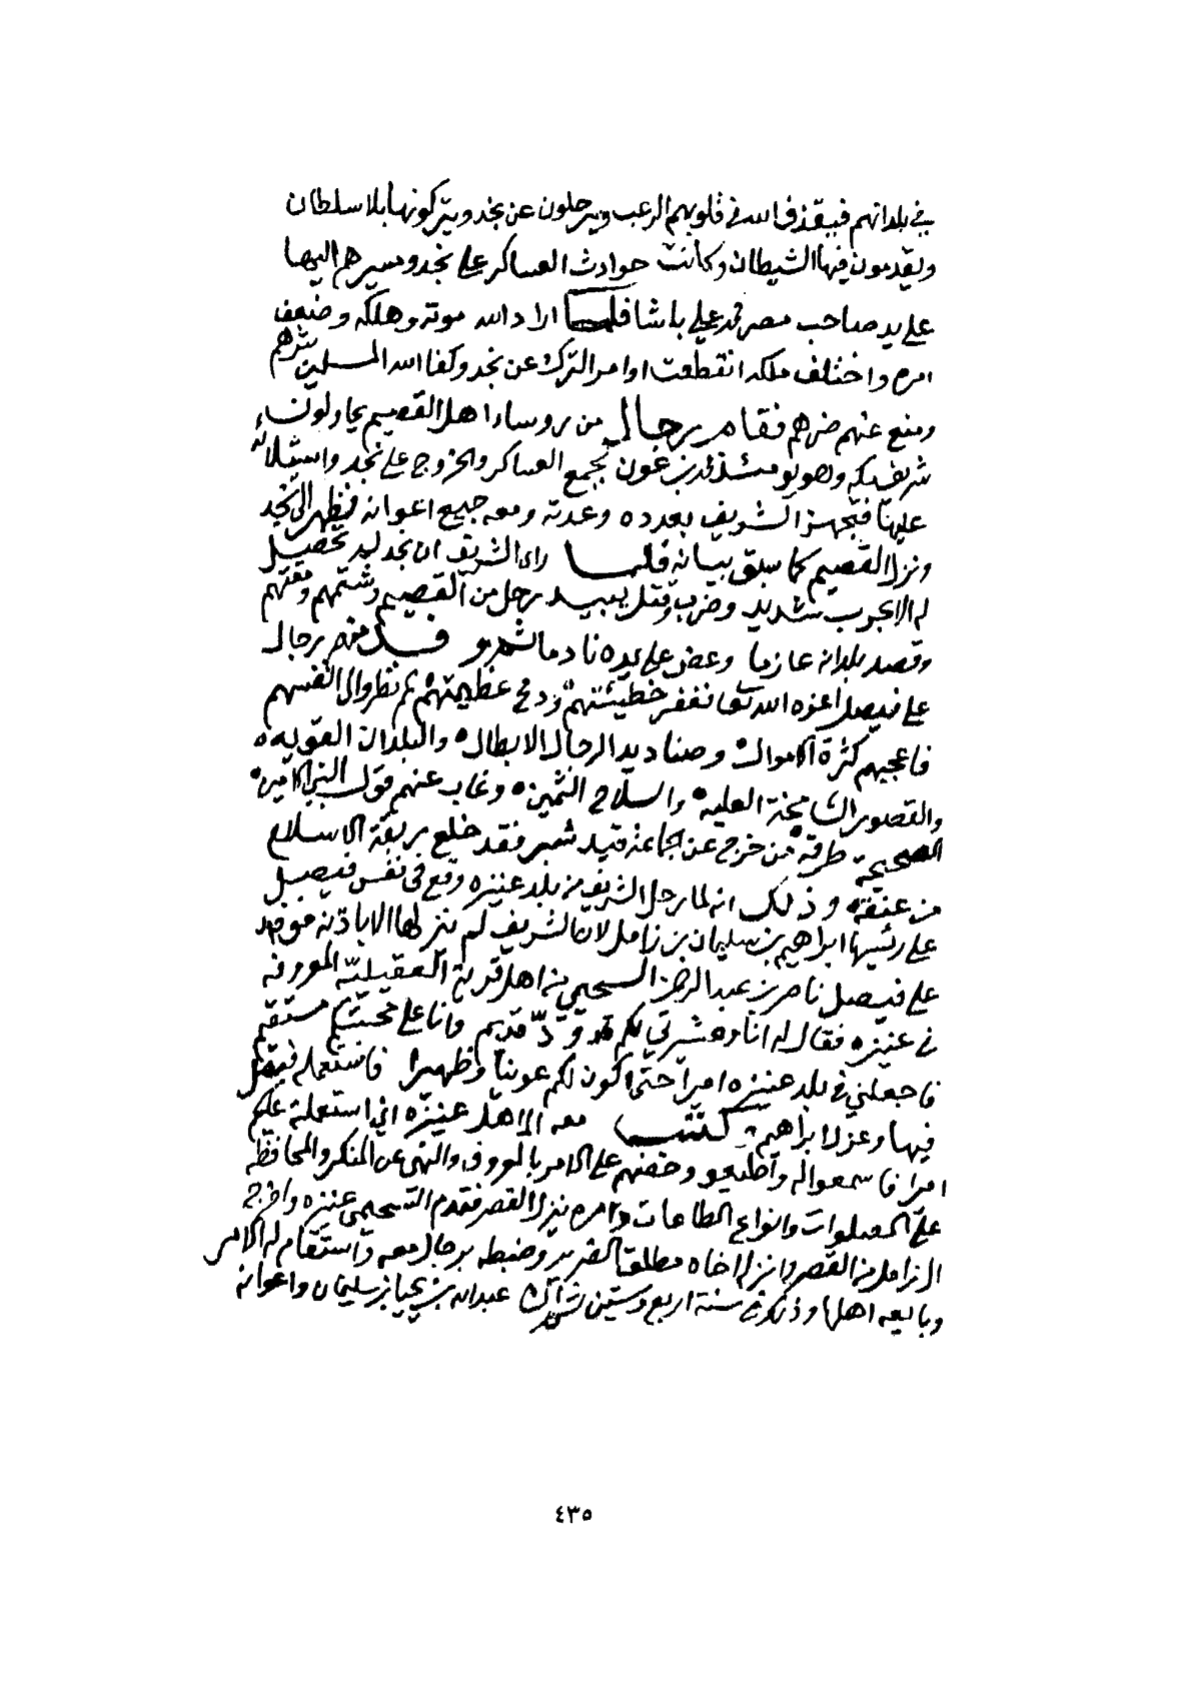 في بلدانهم فيقذف الله في قلوبهم الرعب ويرحلون عن نجد ويتركونها بلا سلطان
ويقدمون فيها الشيطان وكانت حوادث العساكر على نجد ومسيرهم اليها
على يد صاحب مصر محمد علي باشا فلما اراد الله موته وهلكه وضعف
امره واختلف ملكه انقطعت اوامر الترك عن نجد وكفا الله المسلمين شرهم
ومنع عنهم ضرهم فقام رجال من روساء اهل القصيم يحاولون
شريف مكه وهو يومئذ محمد بن عون بجمع العساكر والخروج على نجد واستيلائه
عليها فتجهز الشريف بعدده وعدته ومعه جميع اعوانه فظهر الى نجد
ونزل القصيم كما سبق بيانه فلما راى الشريف ان نجد لم تحصيل
له الا بحرب شديد وضرب وقتل يبيد رجل من القصيم وشتمهم ومقتهم
وقصد بلدانه عازما وعض على يده نادما ثم وفد منهم رجال
على فيصل اعزه الله تعا فغفر خطيئتهم ودمح عظيمتهم ثم نظروا الى انفسهم
فاعجبهم كثرة الاموال وصناديد الرجال الابطال والبلدان القويه
والقصور الشامخة العليه والسلاح الثمين وغاب عنهم قول النبي الامين
الصحيحة طرقه من خرج عن الجماعة قيد شبر فقد خلع ربقة الاسلام
من عنقه وذلك انه لما رحل الشريف من بلد عنيزه وقع في نفس فيصل
على رئيسها ابراهيم بن سليمان بن زامل لان الشريف لم ينزلها الا باذنه فوفد
على فيصل ناصر بن عبد الرحمن السحيمي من اهل قرية العقيلية المعروفه
في عنيزه فقال له انا وعشيرتي لكم ودّ قديم وانا على محبتكم مستقيم
فاجعلني في بلد عنيزه اميرا حتى اكون لكم عونا وظهيرا فاستعمله فيصل
فيها وعزل ابراهيم وكتب معه الى اهل عنيزه اني استعملته عليكم
اميرا فاسمعوا له واطيعو وحضهم على الامر بالمعروف والنهي عن المنكر والمحافظه
على الصلوات وانواع الطاعات وامره ينزل القصر فقدم السحيمي عنيزه واخرج
ال زامل من القصر وانزل اخاه مطلقا الضرير وضبطه برجال معه واستقام له الامر
وبايعه اهلها وذلك في سنة اربع وستين عبد الله بن يحيا بن سليمان واعوانه
٤٣٥